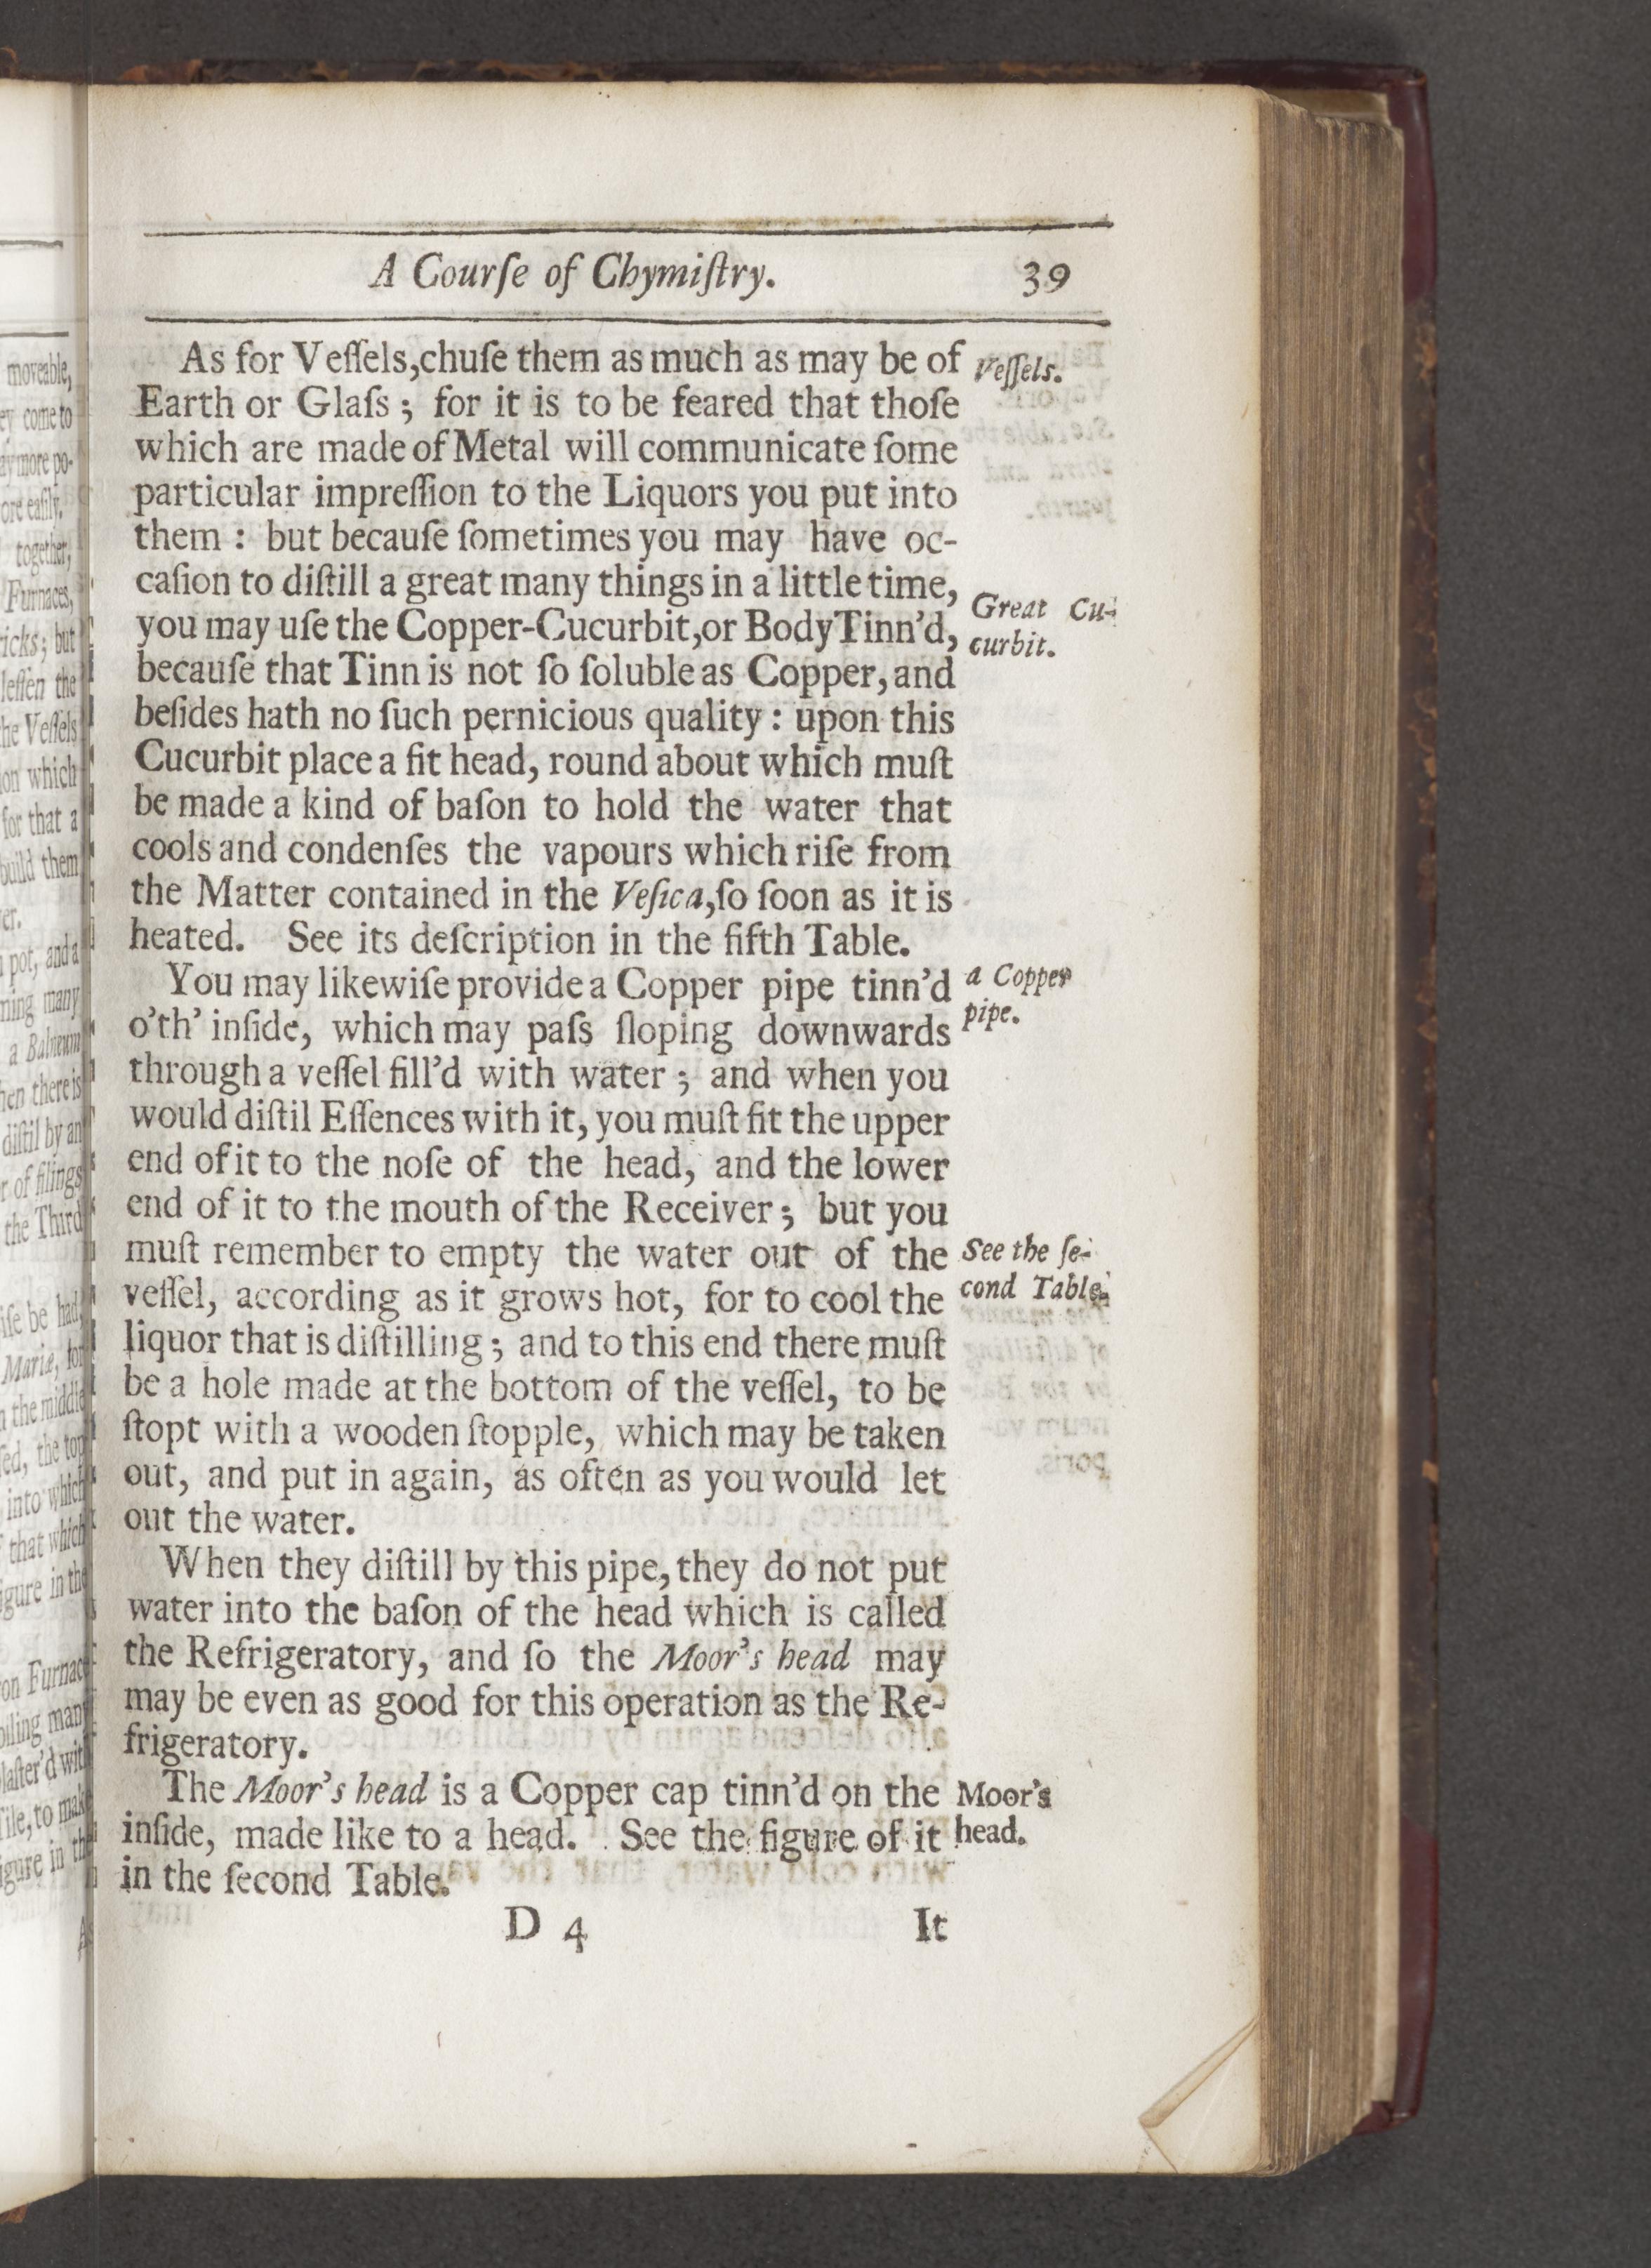 A Courſe of Chymiſtry. 39
As for Veſſels,chuſe them as much as may be of
Veſſels.
Earth or Glaſs ; for it is to be feared that thoſe
which are made of Metal will communicate ſome
particular impreſſion to the Liquors you put into
them : but becauſe ſometimes you may have oc-
caſion to diſtill a great many things in a little time,
you may uſe the Copper-Cucurbit,or Body Tinn'd,
Great Cu-
curbit.
becauſe that Tinn is not ſo ſoluble as Copper, and
beſides hath no ſuch pernicious quality : upon this
Cucurbit place a fit head, round about which muſt
be made a kind of baſon to hold the water that
cools and condenſes the vapours which riſe from
the Matter contained in the Veſica,ſo ſoon as it is
heated. See its deſcription in the fifth Table.
You may likewiſe provide a Copper pipe tinn'd
a Copper
pipe.
o'th' inſide, which may paſs ſloping downwards
through a veſſel fill'd with water ; and when you
would diſtil Eſſences with it, you muſt fit the upper
end of it to the noſe of the head, and the lower
end of it to the mouth of the Receiver ; but you
muſt remember to empty the water out of the
See the ſe-
cond Table.
veſſel, according as it grows hot, for to cool the
liquor that is diſtilling ; and to this end there muſt
be a hole made at the bottom of the veſſel, to be
ſtopt with a wooden ſtopple, which may be taken
out, and put in again, as often as you would let
out the water.
When they diſtill by this pipe, they do not put
water into the baſon of the head which is called
the Refrigeratory, and ſo the Moor's head may
may be even as good for this operation as the Re-
frigeratory.
The Moor's head is a Copper cap tinn'd on the
Moor's
head.
inſide, made like to a head. See the figure of it
in the ſecond Table.
D 4 It
moveable,
come to
more po-
eaſily.
together,
Furnaces,
; but
leſſen the
Veſſels
on which
for that a
build them
pot, and a
many
a Balneum
there is
diſtil by an
of filings
the Third
be had
Mariæ, for
the middle
the top
into which
that which
in the
Furnace
many
to make
in the